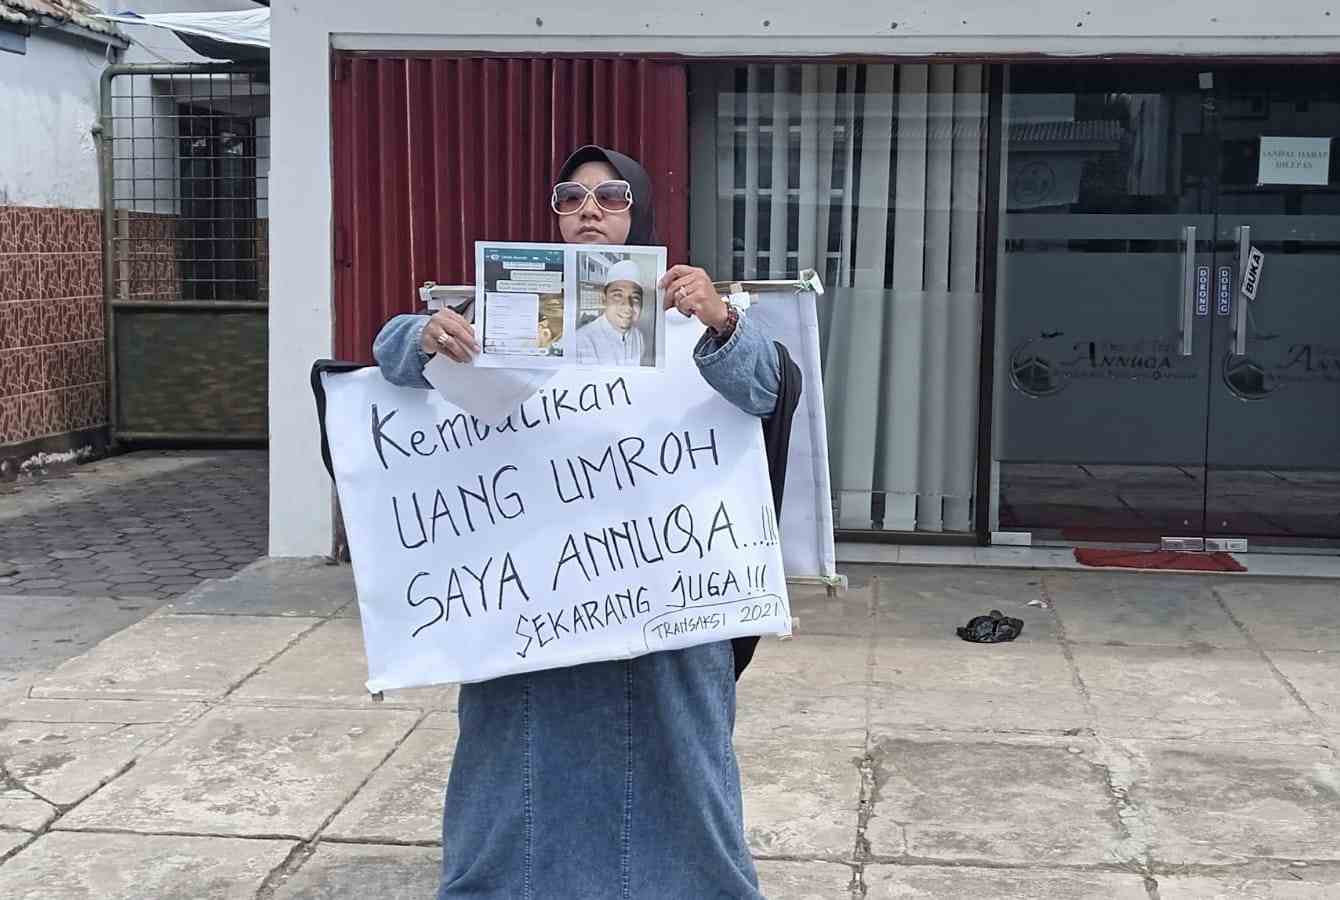 Kembalikan
UANG UMROH
SAYA ANNUQA...!!!
SEKARANG JUGA!!!
TRANSAKSI 2021
SANDAL HARAP
DILEPAS
BUKA
DORONG
DORONG
ANNUQA